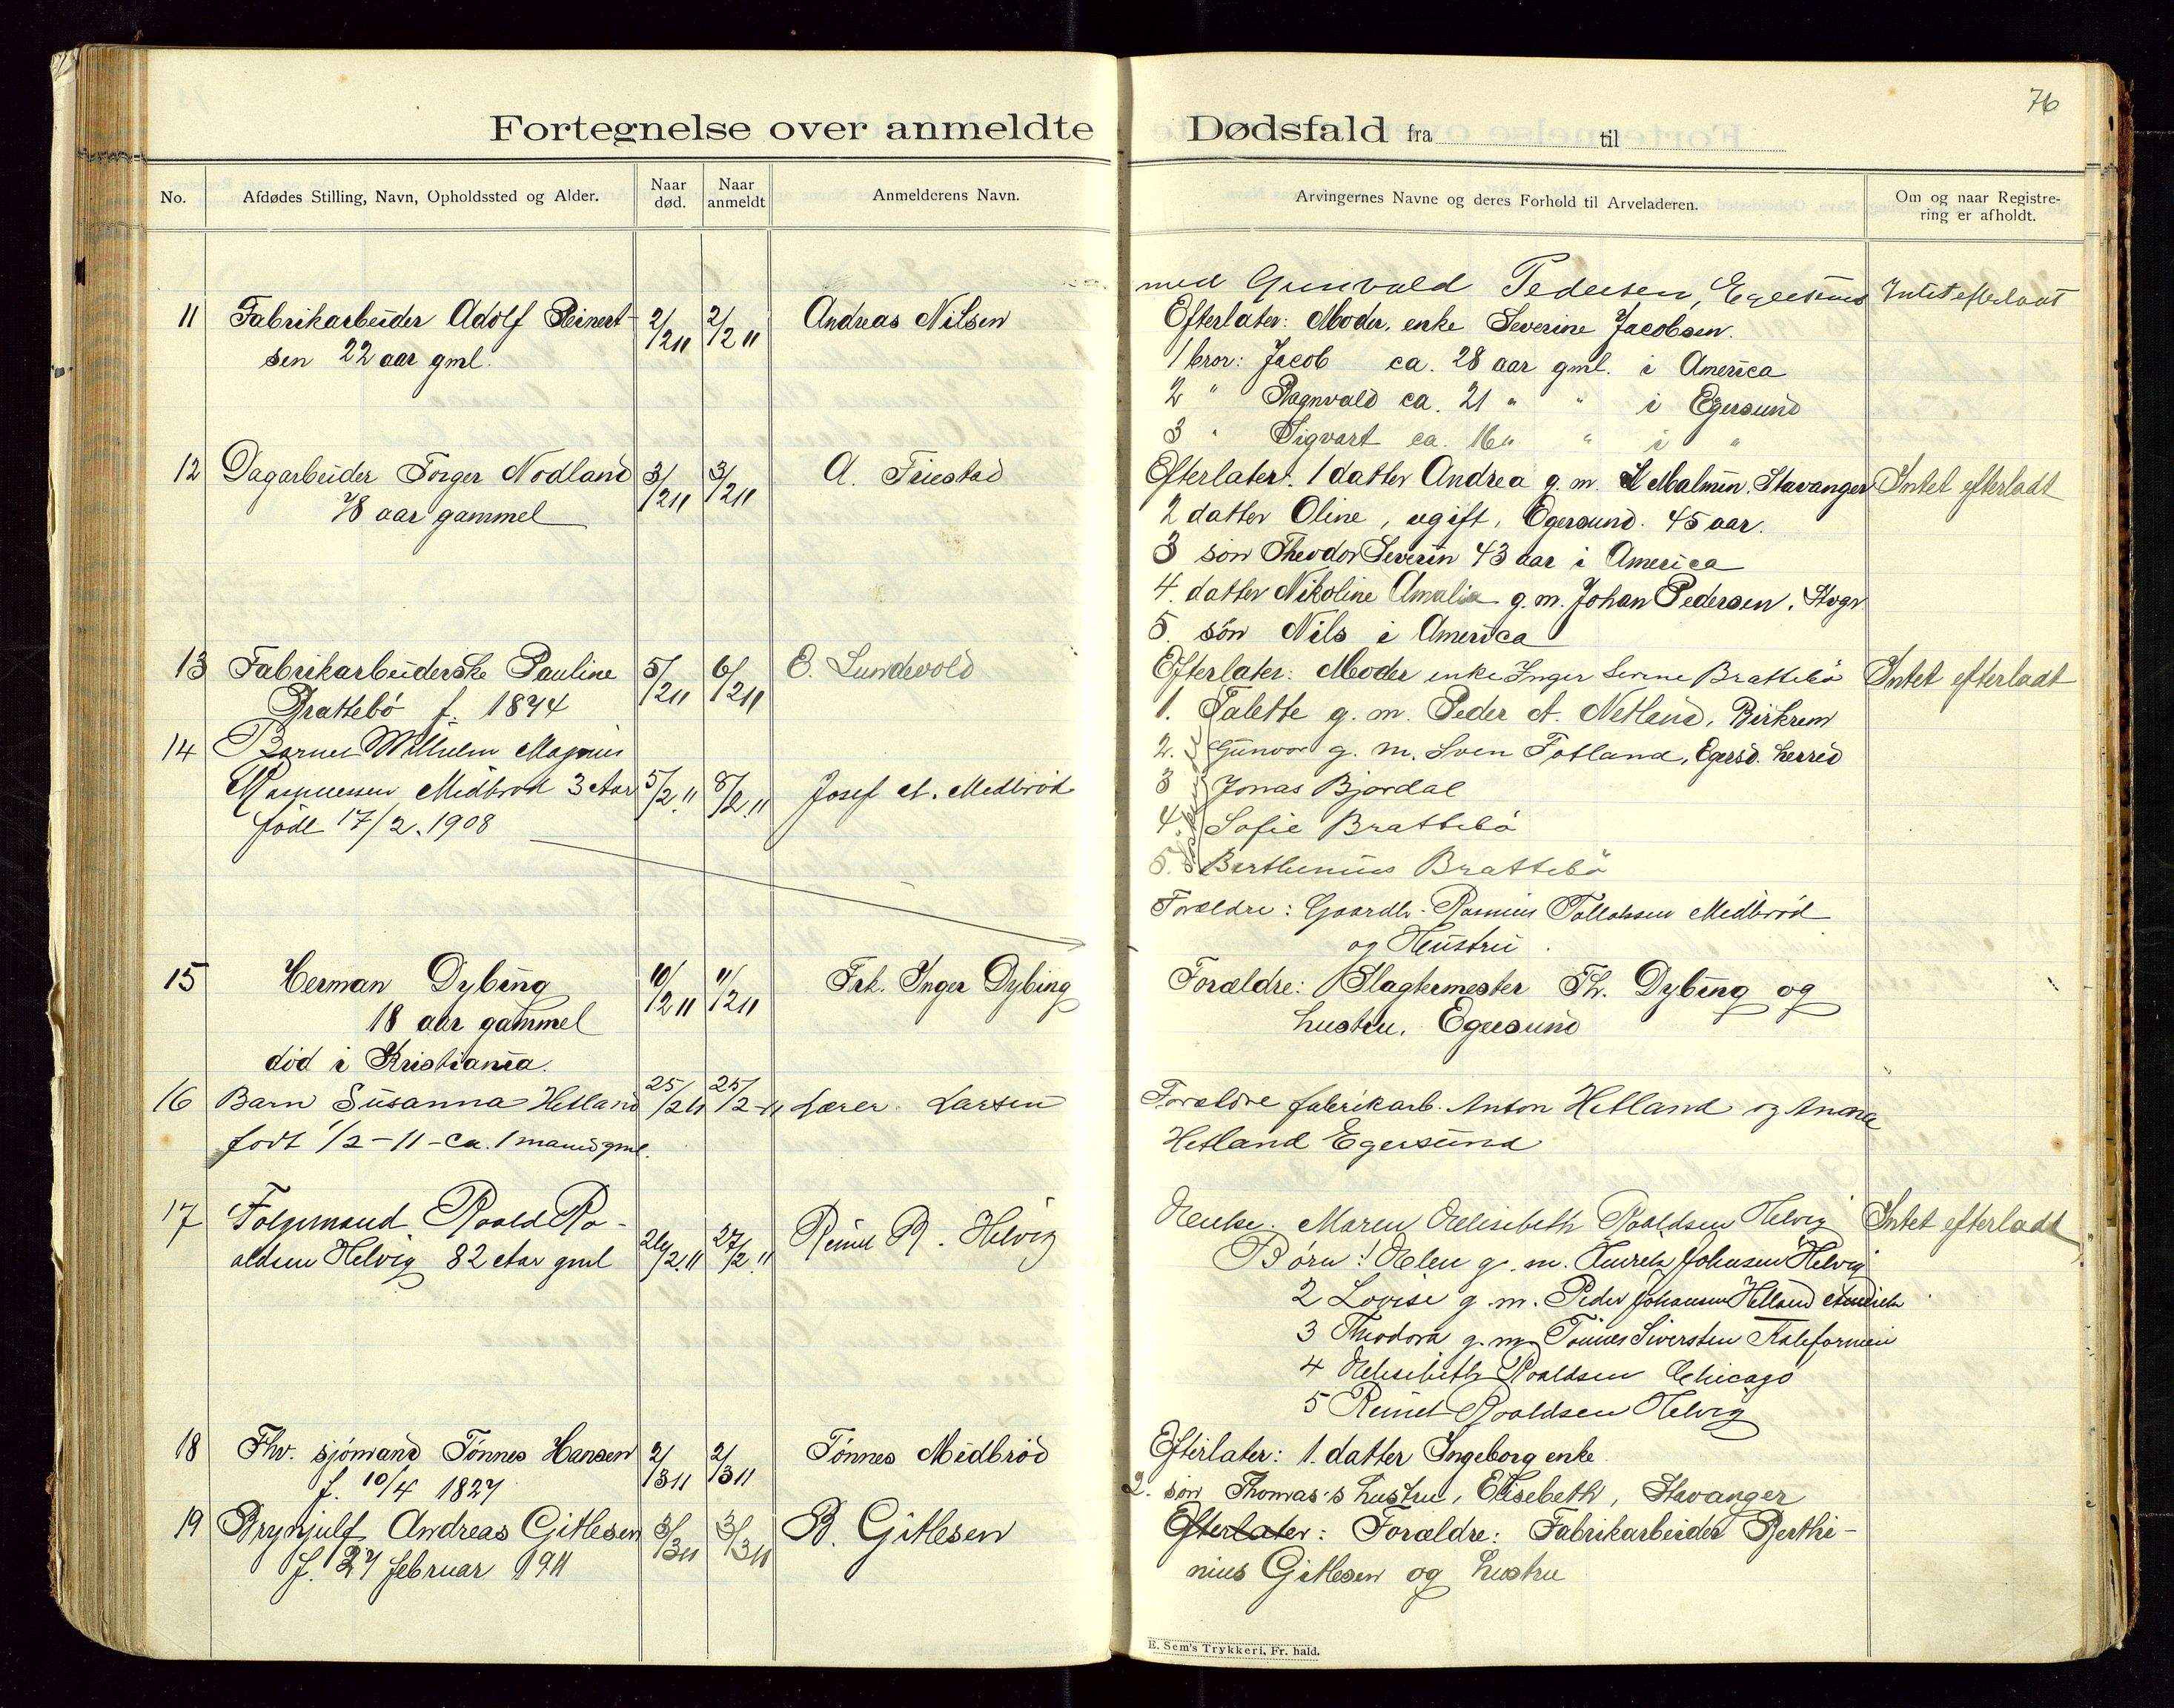 76
Fortegnelse over anmeldte Dødsfald fra til
No.
Afdødes Stilling, Navn, Opholdssted og Alder.
Naar død.
Naar anmeldt
Anmelderens Navn.
Arvingernes Navne og deres Forhold til Arveladeren.
Om og naar Registre-
ring er afholdt.
med Gunvald Pedersen, Egersund Intet efterladt
11 Fabrikarbeider Adolf Reinert- 2/2 11 2/2 11 Andreas Nilsen
sen 22 aar gml.
Efterlater: Moder, enke Severine Jacobsen.
1 bror: Jacob ca. 28 aar gml. i America
2 " Ragnvald ca. 21 " " i Egersund
3 " Sigvart ca. 16 " " i "
12 Dagarbeider Torger Nodland 3/2 11 3/2 11 A. Friestad
78 aar gammel
Efterlater: 1 datter Andrea g. m. Malmin, Stavanger Intet efterladt
2 datter Oline, ugift, Egersund. 45 aar.
3 søn Theodor Severin 43 aar i America
4. datter Nikoline Amalia g. m. Johan Pedersen, Stvgr
5. søn Nils i America
13 Fabrikarbeiderske Pauline 5/2 11 6/2 11 E. Lundevold
Brattebö f. 1874
Efterlater: Moder enke Inger Serine Brattebö Intet efterladt
1. Talette g. m. Peder A. Netland, Birkrem
2. Gunvor g. m. Sven Fotland, Egersd. herred
3 Jonas Bjordal
4 Sofie Brattebö
5. Berthinius Brattebö
14 Barnet Wilhelm Magnus
Rasmussen Midbrød 3 Aar 5/2 11 8/2 11 Josef A. Midbrød
født 17/2. 1908
Forældre: Gaardbr. Rasmus Tollaksen Midbrød
og Hustru
15 Herman Dybing 10/2 11 11/2 11 Frk. Inger Dybing
18 aar gammel
død i Kristiania.
Forældre: Slagtermester Th. Dybing og
hustru, Egersund
16 Barn Susanna Hetland 25/2 11 25/2-11 Lærer Larsen
født 1/2-11-ca. 1 maaned gml.
Forældre fabrikarb. Anton Hetland og Anna
Hetland Egersund
17 Folgemand Roald Ro-
aldsen Helvig 82 Aar gml 26/2. 11 27/2 11 Reinet R. Helvig
Enke. Maren Elisebeth Roaldsen Helvig Intet efterladt
Børn: 1 Elen g. m. Henrik Johnsen Helvig
2 Lovise g. m. Peder Johansen Helland
3 Theodora g. m. Tønnes Siversten Kaliformien
4 Elisebeth Roaldsen Chicago
5 Reinet Roaldsen Helvig
18 Fhv. sjømand Tönnes Hansen 2/3 11 2/3 11 Tönnes Midbröd
f. 10/4 1827
Efterlater: 1. datter Ingeborg enke.
2. søn Thomas's hustru, Elisebeth, Stavanger
19 Brynjulf Andreas Gitlesen 3/3 11 3/3 11 B. Gitlesen
f. 27 februar 1911
Efterlater: Forældre: Fabrikarbeider Berthi-
nius Gitlesen og hustru
E. Sem's Trykkeri, Fr. hald.